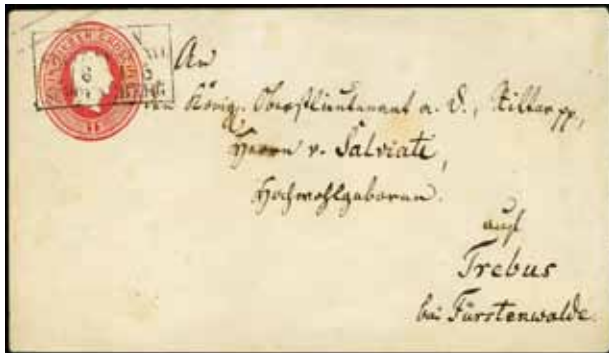 EIN SILBERGROSCHEN
An
den Königl. Oberstlieutenant a. D., Ritter pp,
Herrn v. Salviati,
Hochwohlgeboren.
auf
Trebus
bei Fürstenwalde.